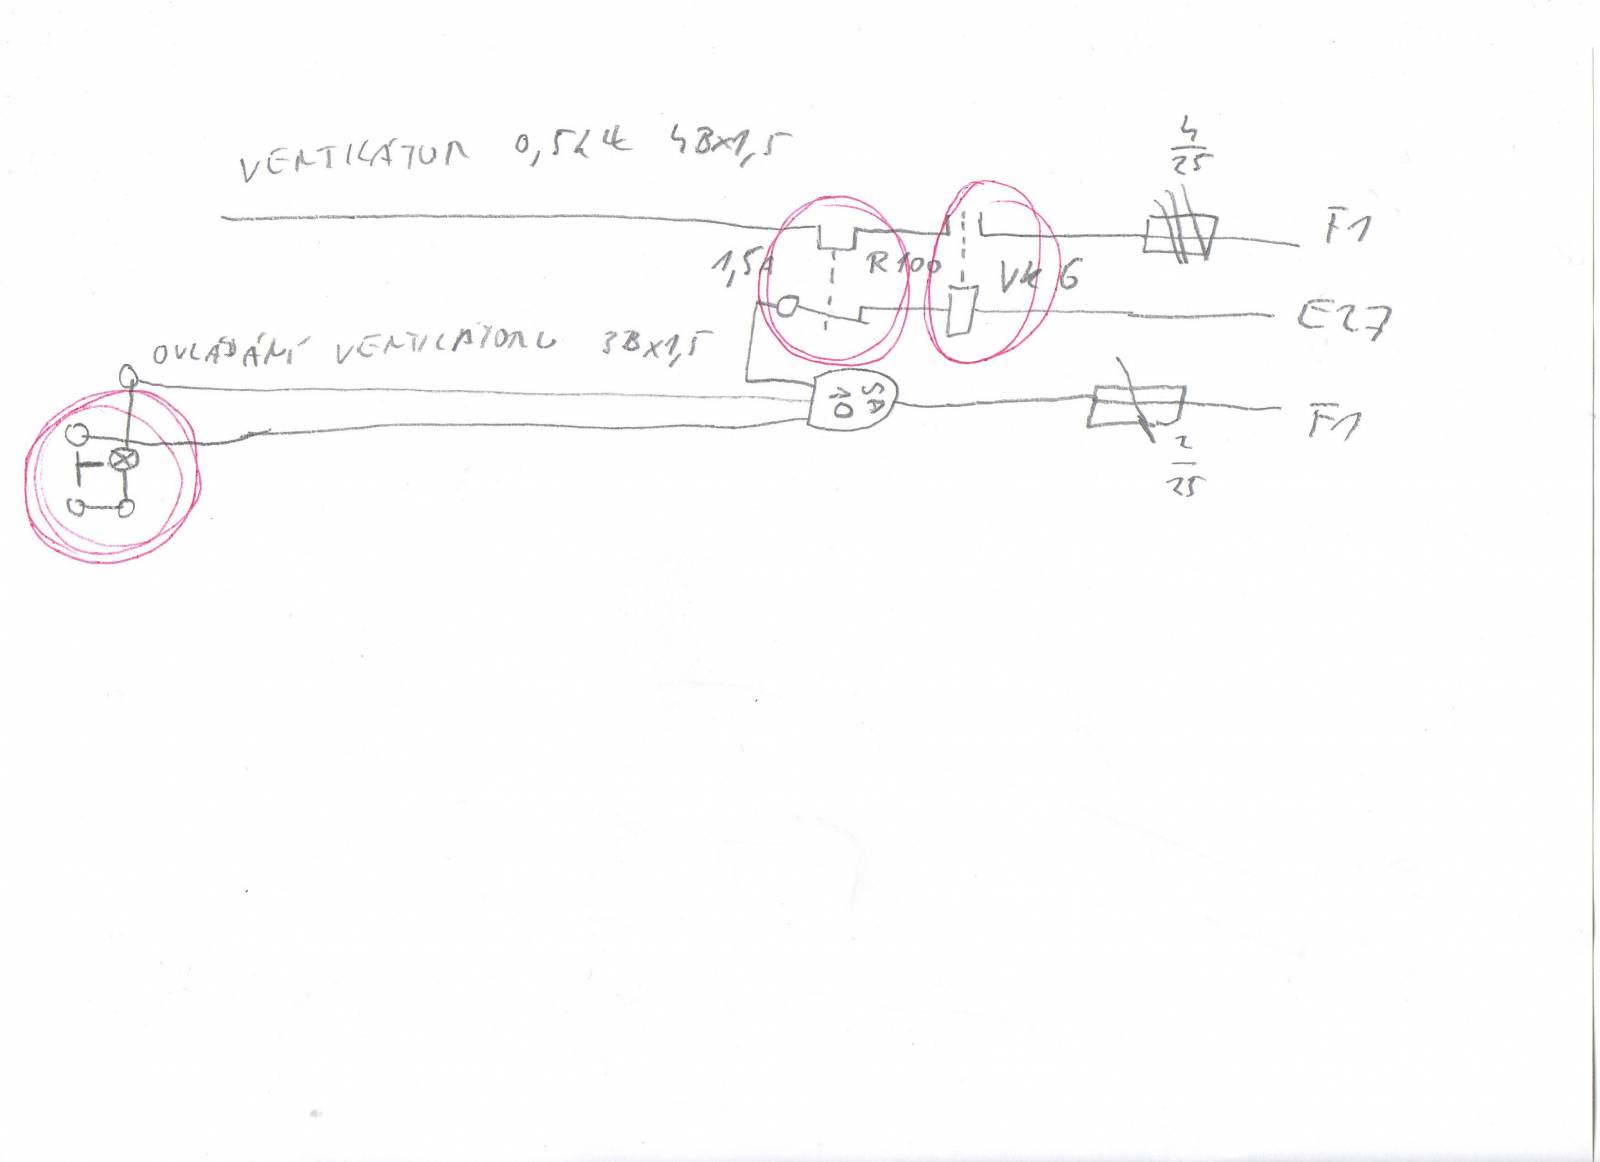 VENTILÁTOR 0,5kW 4Bx1,5
4
25
F1
1,5A R100 VK 6
E27
OVLÁDÁNÍ VENTILÁTORU 3Bx1,5
SA
10
F1
2
25